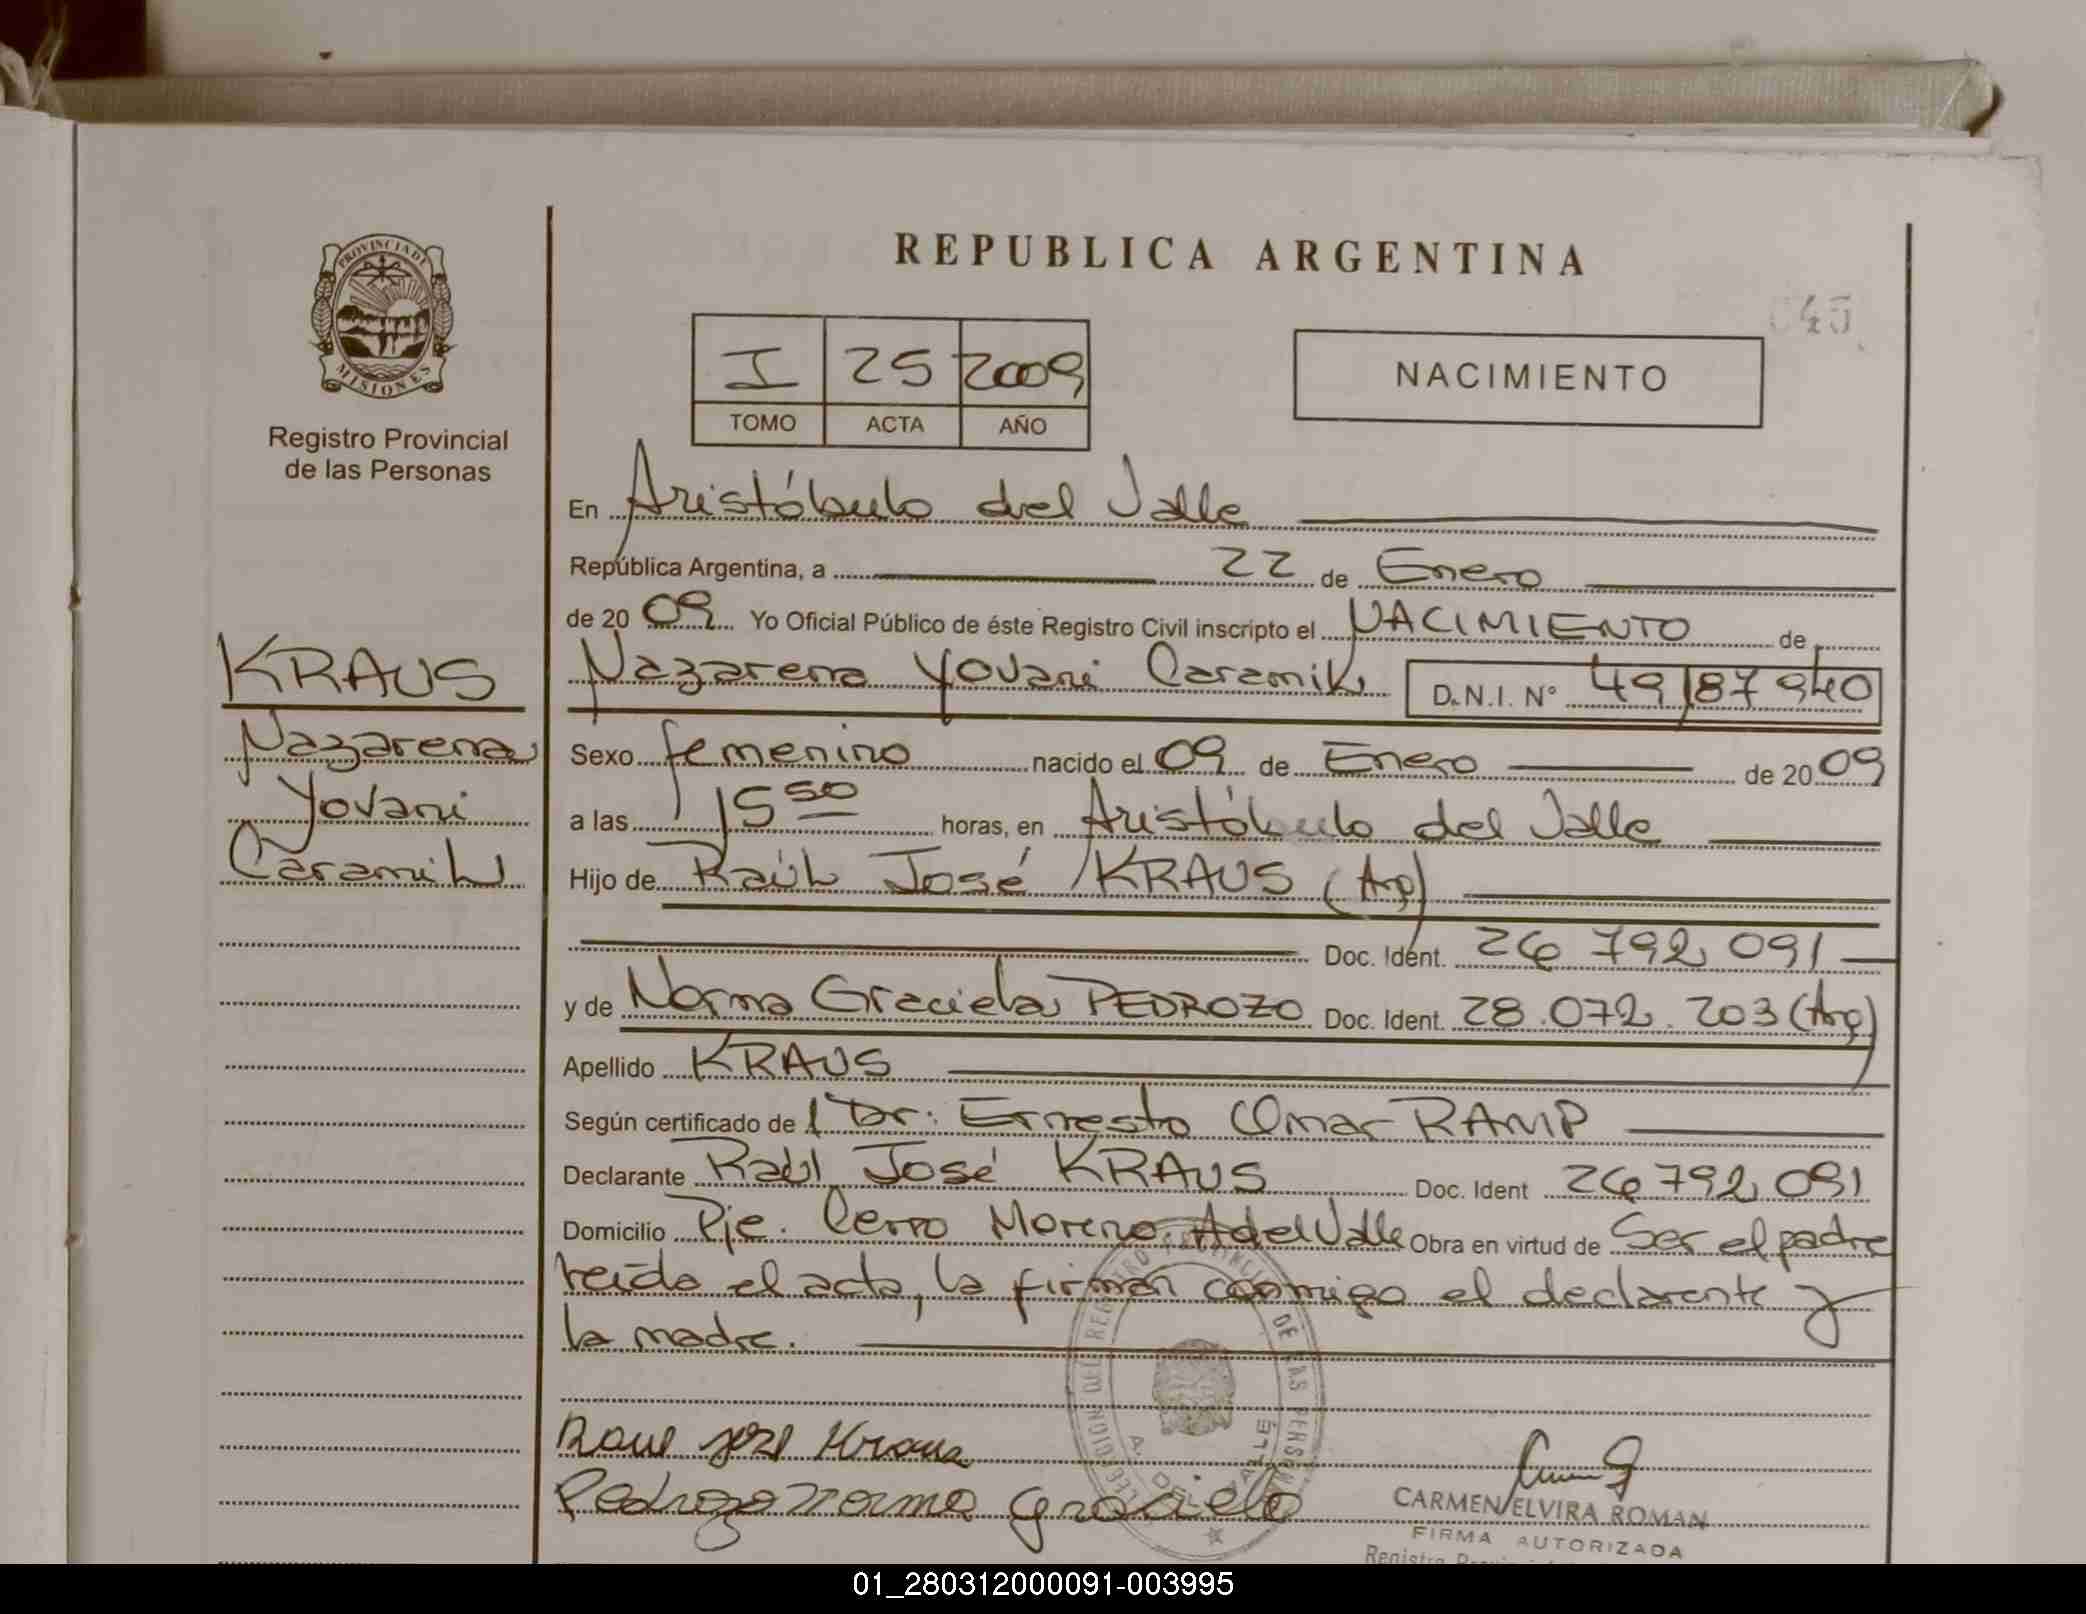 REPUBLICA ARGENTINA
045
PROVINCIA DE
MISIONES
Registro Provincial
de las Personas
I 25 2009
TOMO ACTA AÑO
NACIMIENTO
En Aristóbulo del Valle
República Argentina, a 22 de Enero
de 20 09 Yo Oficial Público de éste Registro Civil inscripto el NACIMIENTO de
Nazarena Yovani Caramik D.N.I. N° 49187940
KRAUS
Nazarena
Yovani
Caramik
Sexo femenino nacido el 09 de Enero de 20 09
a las 15 50 horas, en Aristóbulo del Valle
Hijo de Raúl José KRAUS (Arg)
Doc. Ident. 26 792 091
y de Norma Graciela PEDROZO Doc. Ident. 28.072.203 (Arg)
Apellido KRAUS
Según certificado de l Dr: Ernesto Omar RAMP
Declarante Raúl José KRAUS Doc. Ident 26 792 091
Domicilio Pje. Cerro Moreno A del Valle Obra en virtud de Ser el padre
leída el acta, la firman conmigo el declarante y
la madre.
Raul jose Kraus
Pedrozo norma graciela
DEL REGISTRO PROVINCIAL DE LAS PERSONAS
A. DEL VALLE
CARMEN ELVIRA ROMAN
FIRMA AUTORIZADA
Registro
01_280312000091-003995